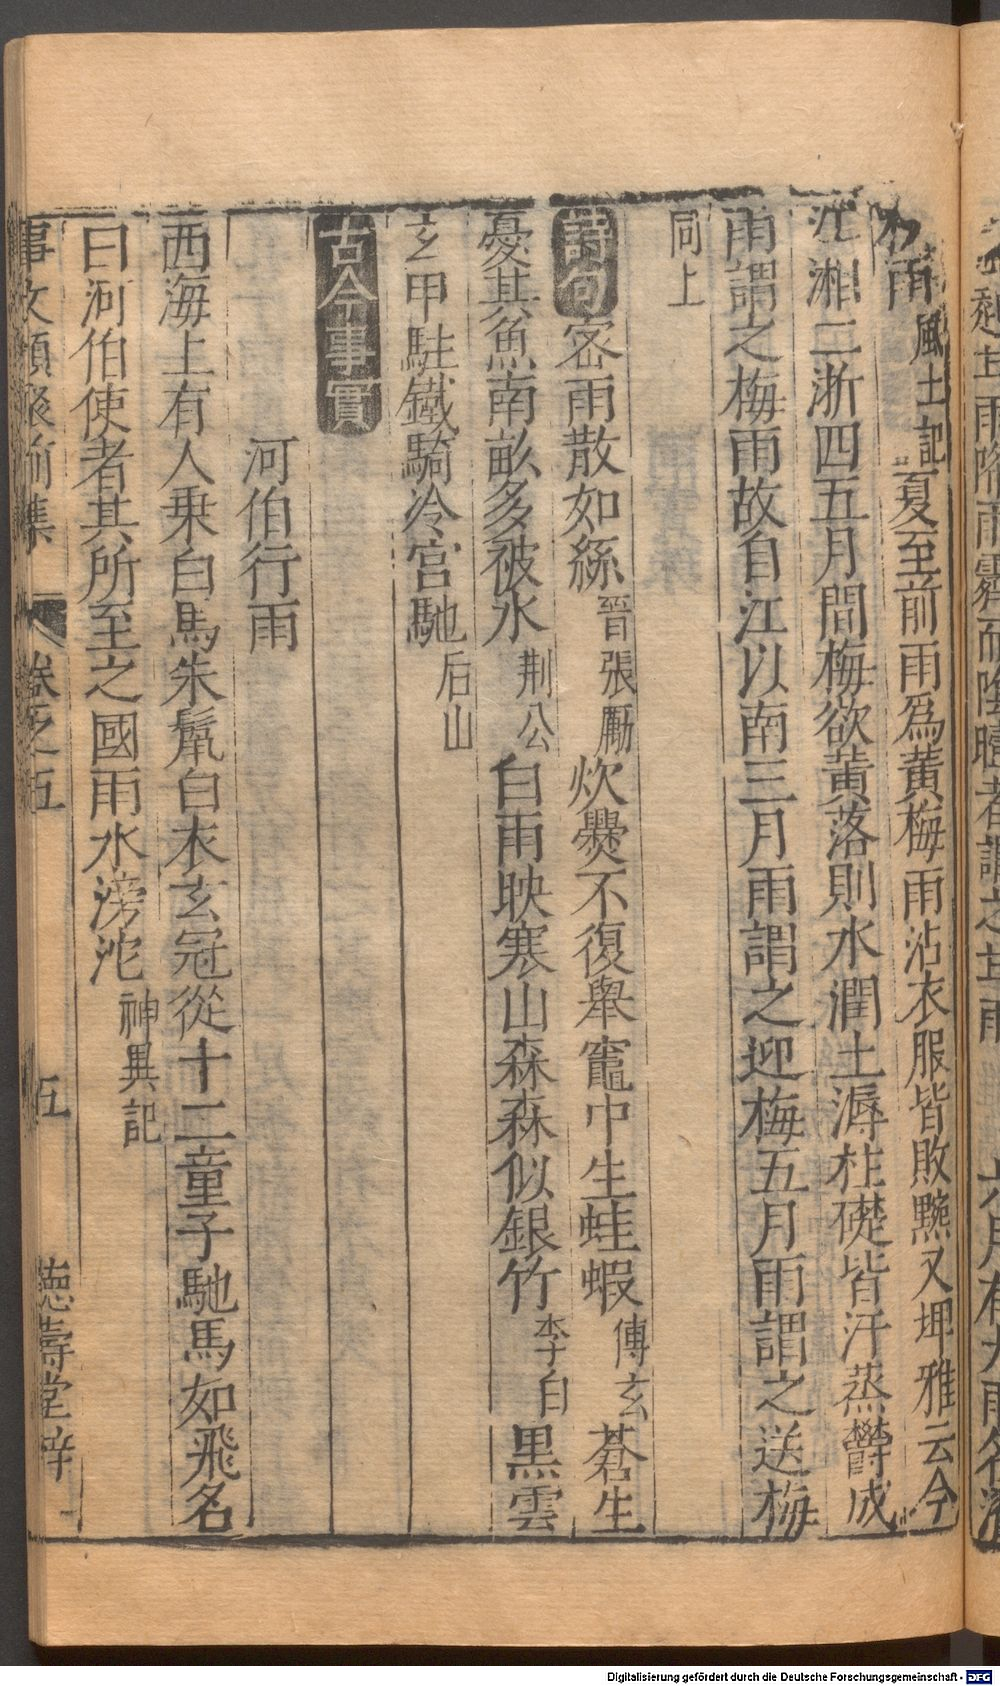 雨風土記夏至前雨爲黃梅雨沾衣服皆敗黦又埤雅云今
江湘二浙四五月間梅欲黃落則水潤土溽柱礎皆汗蒸鬱成
雨謂之梅雨故自江以南三月雨謂之迎梅五月雨謂之送梅
同上
詩句密雨散如絲晉張勵炊㸑不復舉竈中生蛙蝦傅玄蒼生
憂其魚南畝多被水荆公白雨映寒山森森似銀竹李白黒雲
玄甲駐鐵騎冷官馳后山
古今事實
河伯行雨
西海上有人乗白馬朱鬛白衣玄冠從十二童子馳馬如飛名
曰河伯使者其所至之國雨水滂沱神異記
事文類聚前集 卷之五 五 德壽堂梓
Digitalisierung gefördert durch die Deutsche Forschungsgemeinschaft - DFG